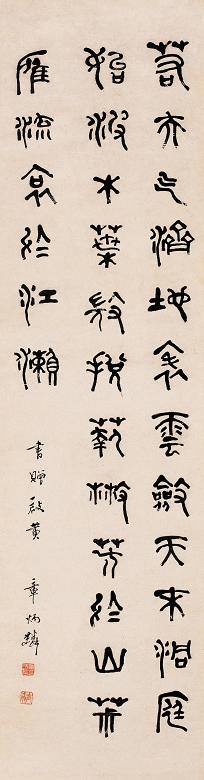 若夫气濟地表雲斂天末洞庭
始波木葉𢼸捝蘜㪔芳於山茮
雁流哀於江瀨
書贈啟黄 章炳麟